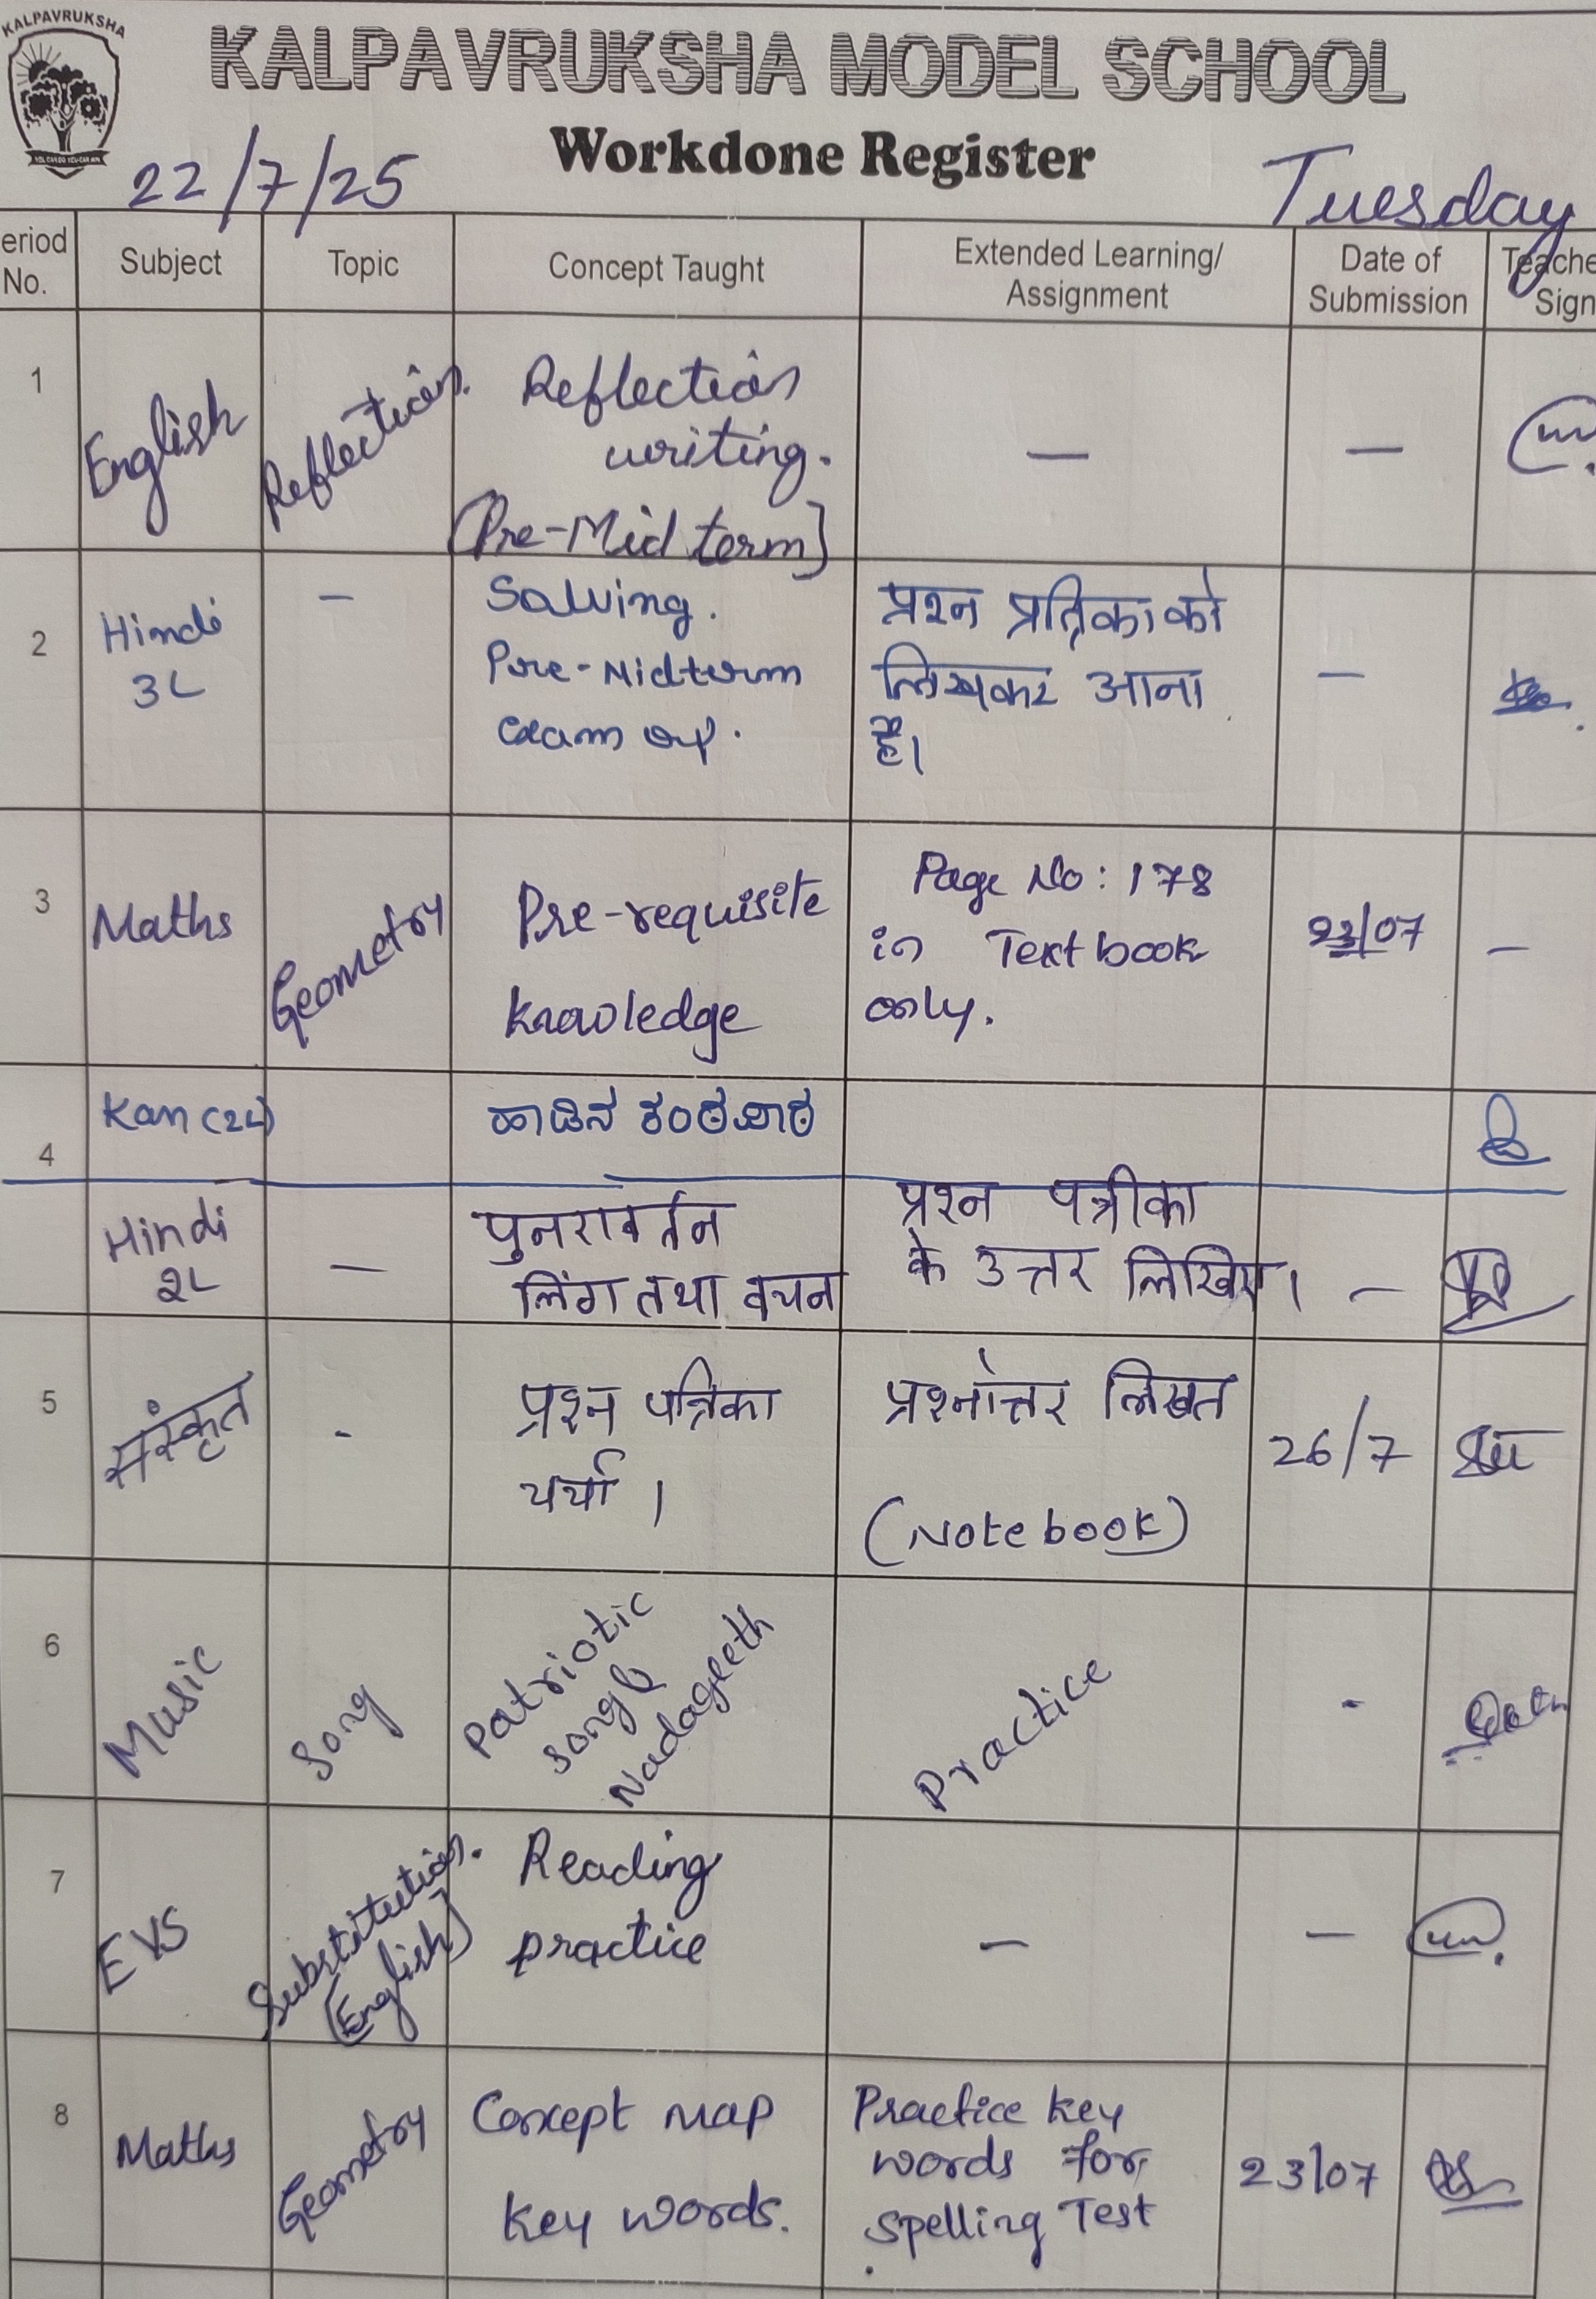 KALPAVRUKSHA
KALPAVRUKSHA MODEL SCHOOL
Workdone Register
22/7/25
Tuesday
eriod No.
Subject
Topic
Concept Taught
Extended Learning/
Assignment
Date of
Submission
Teache
Sign
1
English
Reflection.
Reflection
writing.
(Pre-Mid term]
—
—
2
Hindi
3L
—
Solving.
Pre-Midterm
exam qp.
प्रश्न प्रत्रिका को
लिखकर आना
है।
—
3
Maths
Geometry
Pre-requisite
knowledge
Page No: 178
in Textbook
only.
23/07
—
4
Kan (2L)
ಹಾಡಿನ ಕಂಠಪಾಠ
Hindi
2L
—
पुनरावर्तन
लिंग तथा वचन
प्रश्न पत्रीका
के उत्तर लिखिए।
—
5
संस्कृत
-
प्रश्न पत्रिका
चर्चा ।
प्रश्नोत्तर लिखत
(Notebook)
26/7
6
Music
Song
Patriotic
song &
Nadageeth
Practice
-
7
EVS
Substitution.
(English)
Reading
practice
—
—
8
Maths
Geometry
Concept map
key words.
Practice key
words for
spelling Test
23/07